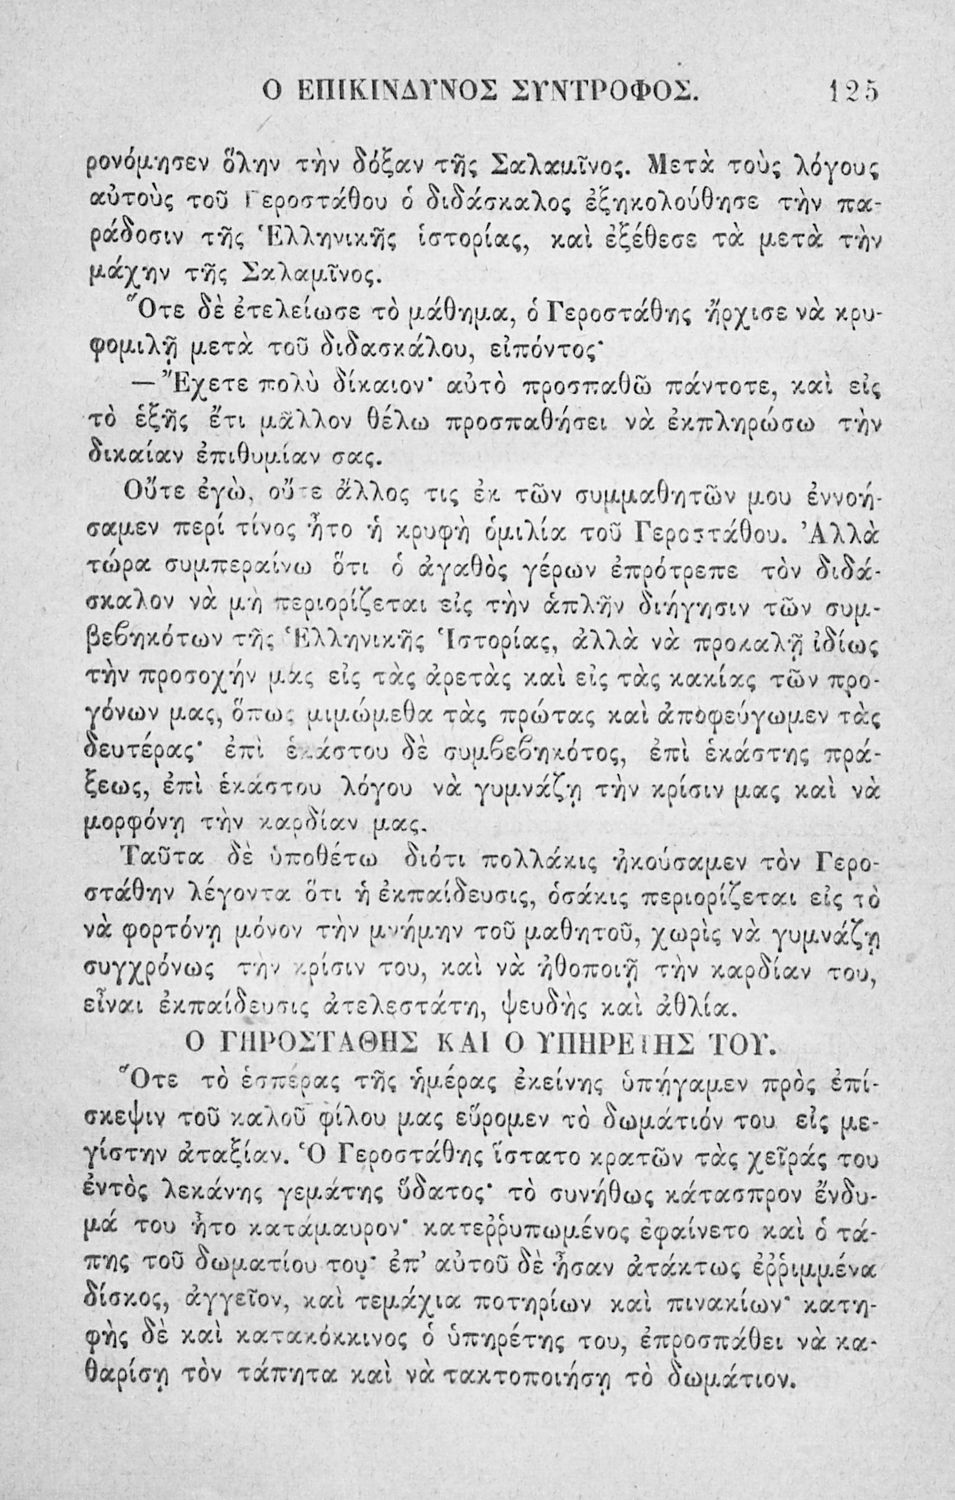 Ο ΕΠΙΚΙΝΔΥΝΟΣ ΣΥΝΤΡΟΦΟΣ. 125
ρονόμησεν ὅλην τὴν δόξαν τῆς Σαλαμῖνος. Μετὰ τοὺς λόγους
αὐτοὺς τοῦ Γεροστάθου ὁ διδάσκαλος ἐξηκολούθησε τὴν πα-
ράδοσιν τῆς Ἑλληνικῆς ἱστορίας, καὶ ἐξέθεσε τὰ μετὰ τὴν
μάχην τῆς Σαλαμῖνος.
Ὅτε δὲ ἐτελείωσε τὸ μάθημα, ὁ Γεροστάθης ἤρχισε νὰ κρυ-
φομιλῇ μετὰ τοῦ διδασκάλου, εἰπόντος·
— Ἔχετε πολὺ δίκαιον· αὐτὸ προσπαθῶ πάντοτε, καὶ εἰς
τὸ ἑξῆς ἔτι μᾶλλον θέλω προσπαθήσει νὰ ἐκπληρώσω τὴν
δικαίαν ἐπιθυμίαν σας.
Οὔτε ἐγὼ, οὔτε ἄλλος τις ἐκ τῶν συμμαθητῶν μου ἐννοή-
σαμεν περί τίνος ἦτο ἡ κρυφὴ ὁμιλία τοῦ Γεροστάθου. Ἀλλὰ
τώρα συμπεραίνω ὅτι ὁ ἀγαθὸς γέρων ἐπρότρεπε τὸν διδά-
σκαλον νὰ μὴ περιορίζεται εἰς τὴν ἁπλῆν διήγησιν τῶν συμ-
βεβηκότων τῆς Ἑλληνικῆς Ἱστορίας, ἀλλὰ νὰ προκαλῇ ἰδίως
τὴν προσοχήν μας εἰς τὰς ἀρετὰς καὶ εἰς τὰς κακίας τῶν προ-
γόνων μας, ὅπως μιμώμεθα τὰς πρώτας καὶ ἀποφεύγωμεν τὰς
δευτέρας· ἐπὶ ἑκάστου δὲ συμβεβηκότος, ἐπὶ ἑκάστης πρά-
ξεως, ἐπὶ ἑκάστου λόγου νὰ γυμνάζῃ τὴν κρίσιν μας καὶ νὰ
μορφόνῃ τὴν καρδίαν μας.
Ταῦτα δὲ ὑποθέτω διότι πολλάκις ἠκούσαμεν τὸν Γερο-
στάθην λέγοντα ὅτι ἡ ἐκπαίδευσις, ὁσάκις περιορίζεται εἰς τὸ
νὰ φορτόνῃ μόνον τὴν μνήμην τοῦ μαθητοῦ, χωρὶς νὰ γυμνάζῃ
συγχρόνως τὴν κρίσιν του, καὶ νὰ ἠθοποιῇ τὴν καρδίαν του,
εἶναι ἐκπαίδευσις ἀτελεστάτη, ψευδὴς καὶ ἀθλία.
Ο ΓΗΡΟΣΤΑΘΗΣ ΚΑΙ Ο ΥΠΗΡΕΤΗΣ ΤΟΥ.
Ὅτε τὸ ἑσπέρας τῆς ἡμέρας ἐκείνης ὑπήγαμεν πρὸς ἐπί-
σκεψιν τοῦ καλοῦ φίλου μας εὕρομεν τὸ δωμάτιόν του εἰς με-
γίστην ἀταξίαν. Ὁ Γεροστάθης ἵστατο κρατῶν τὰς χεῖράς του
ἐντὸς λεκάνης γεμάτης ὕδατος· τὸ συνήθως κάτασπρον ἔνδυ-
μά του ἦτο κατάμαυρον· κατεῤῥυπωμένος ἐφαίνετο καὶ ὁ τά-
πης τοῦ δωματίου του· ἐπ' αὐτοῦ δὲ ἦσαν ἀτάκτως ἐῤῥιμμένα
δίσκος, ἀγγεῖον, καὶ τεμάχια ποτηρίων καὶ πινακίων· κατη-
φὴς δὲ καὶ κατακόκκινος ὁ ὑπηρέτης του, ἐπροσπάθει νὰ κα-
θαρίσῃ τὸν τάπητα καὶ νὰ τακτοποιήσῃ τὸ δωμάτιον.